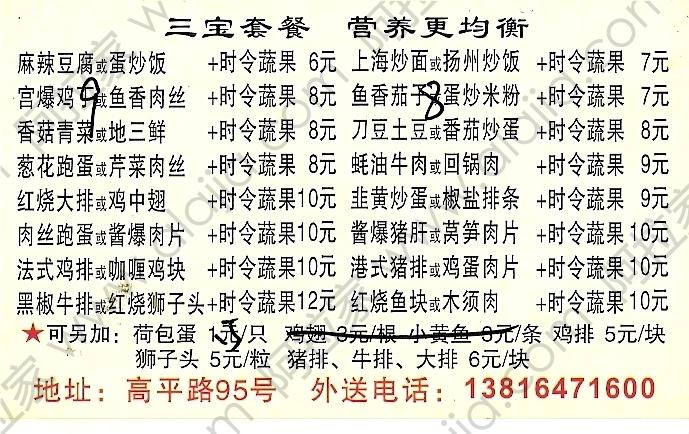 三宝套餐 营养更均衡
麻辣豆腐或蛋炒饭 +时令蔬果 6元 上海炒面或扬州炒饭 +时令蔬果 7元
宫爆鸡 9 或鱼香肉丝 +时令蔬果 8元 鱼香茄子 8 蛋炒米粉 +时令蔬果 7元
香菇青菜或地三鲜 +时令蔬果 8元 刀豆土豆或番茄炒蛋 +时令蔬果 8元
葱花跑蛋或芹菜肉丝 +时令蔬果 8元 蚝油牛肉或回锅肉 +时令蔬果 9元
红烧大排或鸡中翅 +时令蔬果10元 韭黄炒蛋或椒盐排条 +时令蔬果 9元
肉丝跑蛋或酱爆肉片 +时令蔬果10元 酱爆猪肝或莴笋肉片 +时令蔬果 9元
法式鸡排或咖喱鸡块 +时令蔬果10元 港式猪排或鸡蛋肉片 +时令蔬果10元
黑椒牛排或红烧狮子头+时令蔬果12元 红烧鱼块或木须肉 +时令蔬果10元
★可另加：荷包蛋 1 /只 鸡翅 3元/根 小黄鱼 3元/条 鸡排 5元/块
狮子头 5元/粒 猪排、牛排、大排 6元/块
地址：高平路95号 外送电话：13816471600